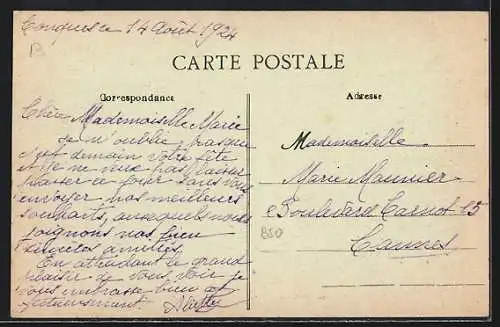 14 Août 1924
CARTE POSTALE
Correspondance
Adresse
Chère Mademoiselle Marie
je n'oublie pas que
c'est demain votre fête
et je ne veux pas laisser
passer ce jour sans vous
envoyer nos meilleurs
souhaits, auxquels nous
joignons nos bien
sincères amitiés.
En attendant le grand
plaisir de vous voir je
vous embrasse bien
affectueusement.
Mademoiselle
Marie Maunier
Boulevard Carnot 15
Cannes
B50
B